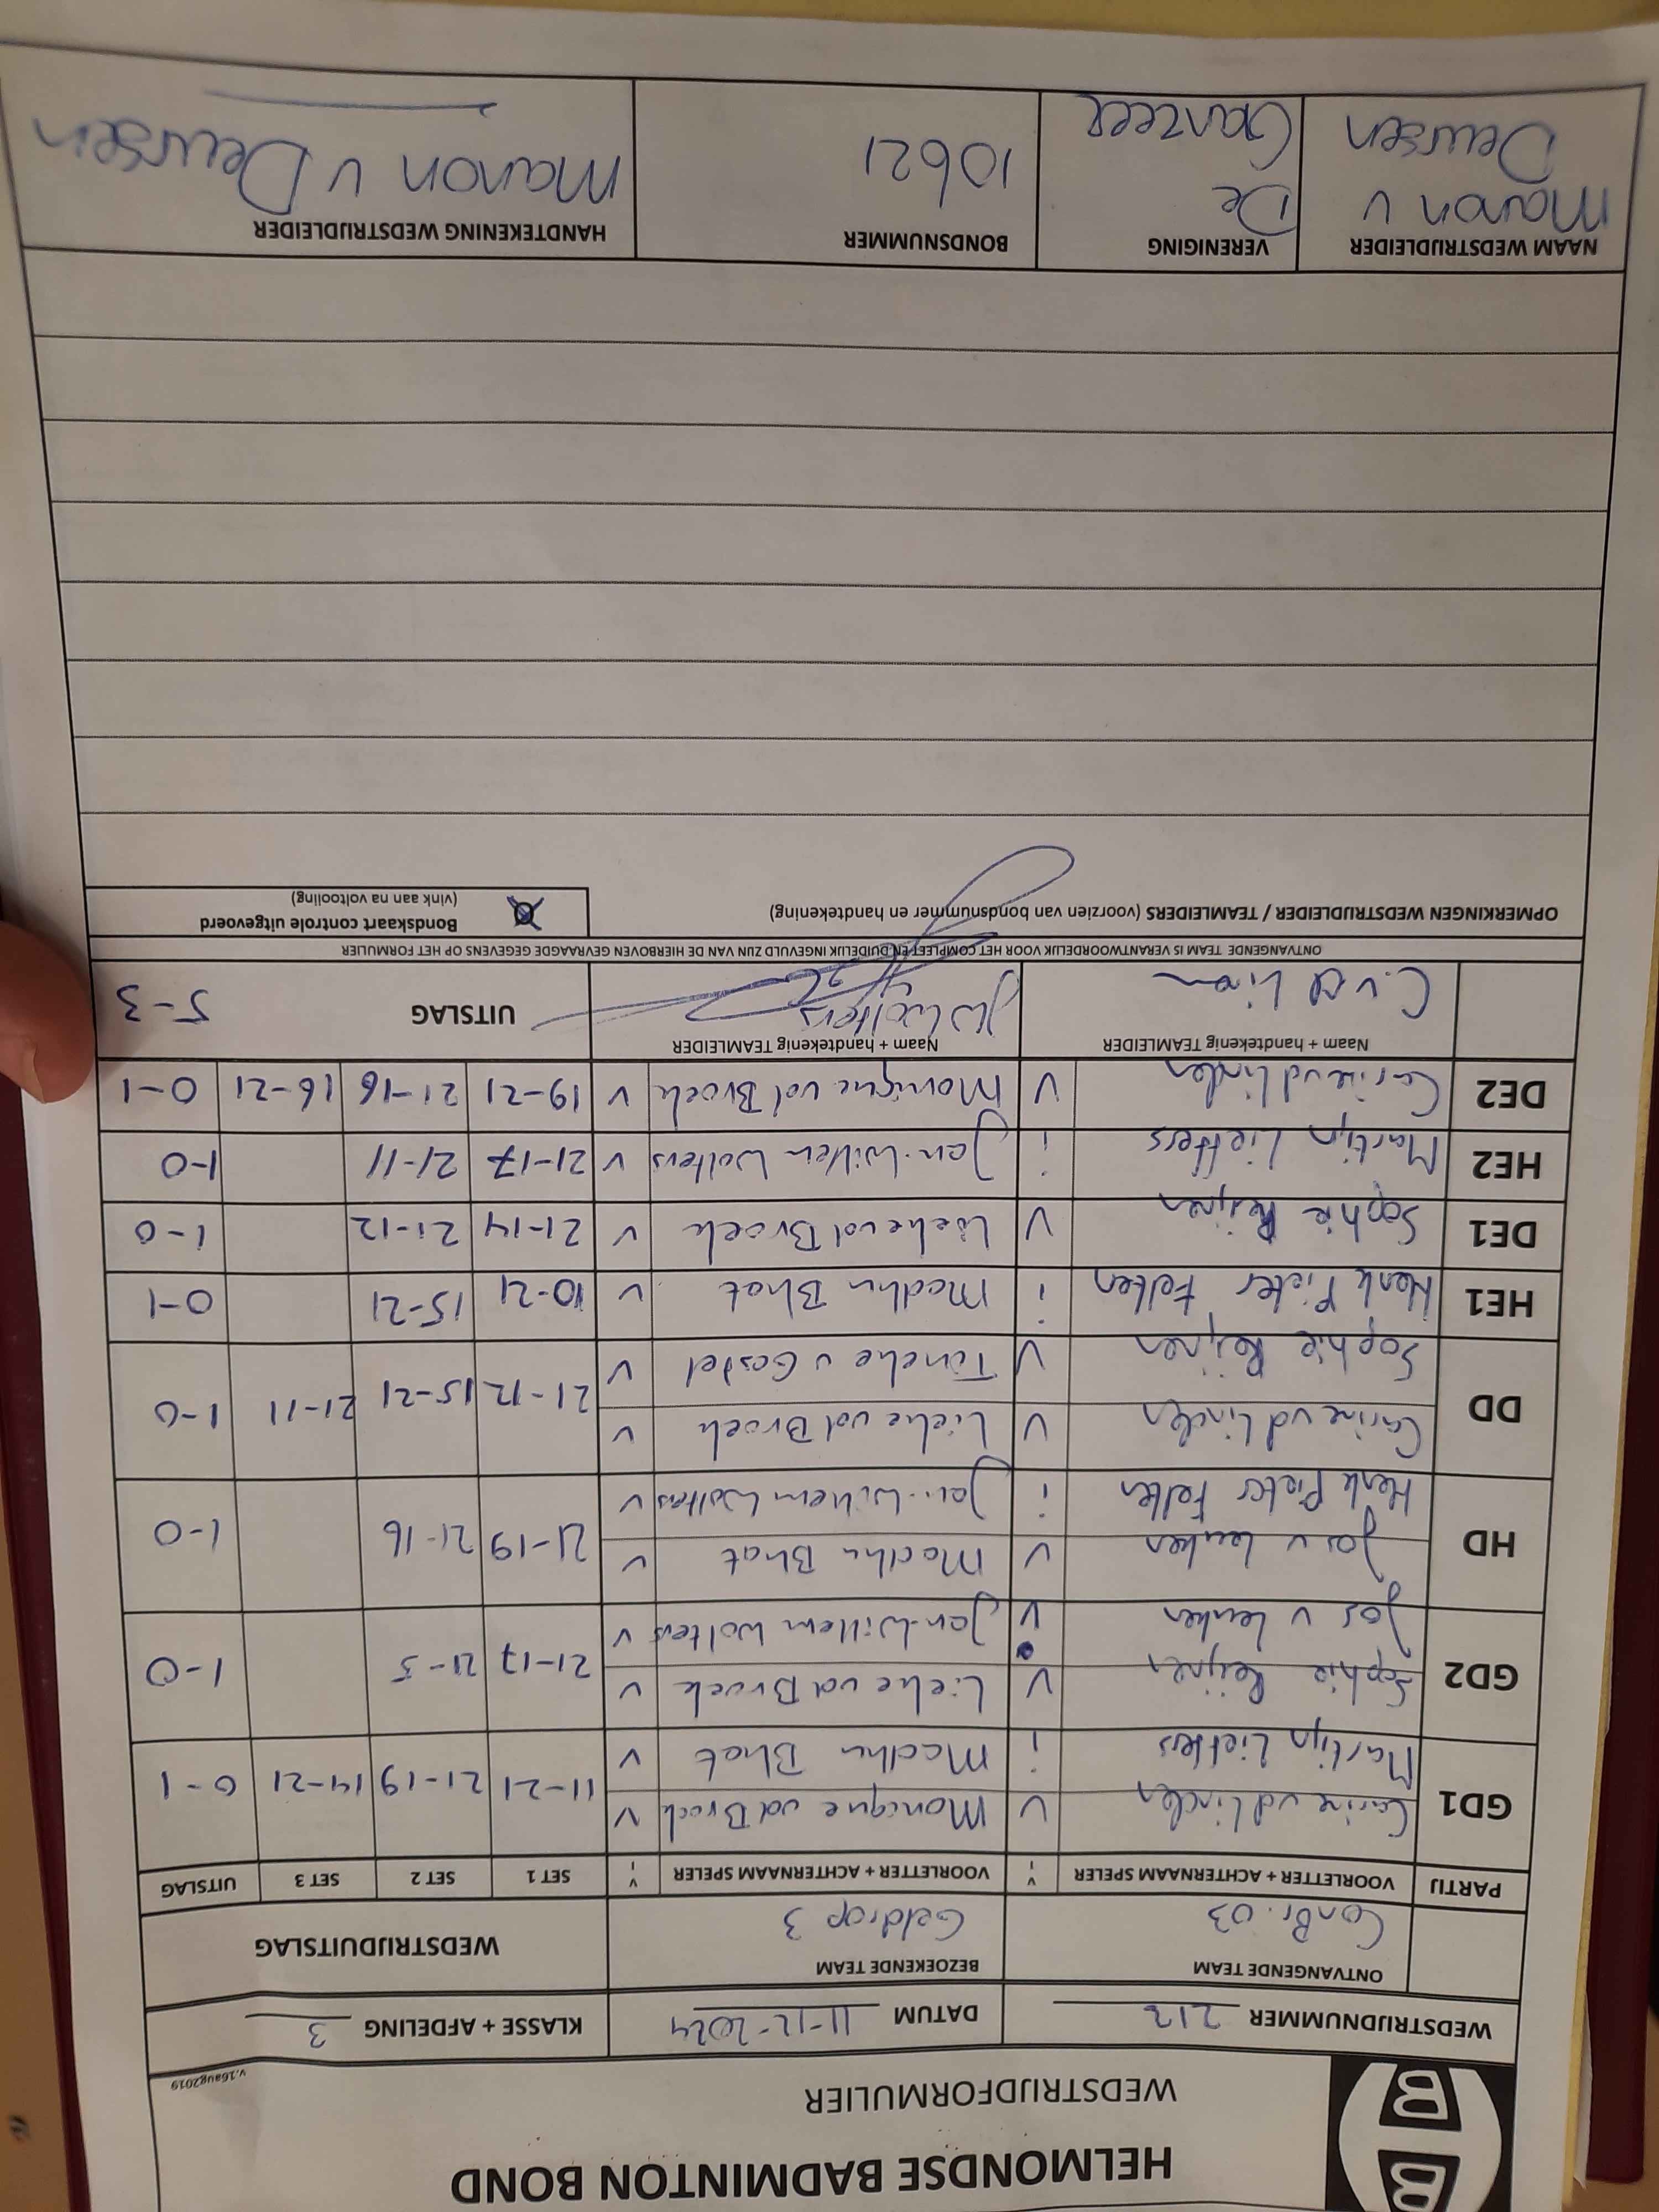 HELMONDSE BADMINTON BOND
WEDSTRIJDFORMULIER
v.16aug2019
WEDSTRIJDNUMMER 212 DATUM 11-12-2024 KLASSE + AFDELING 3
ONTVANGENDE TEAM BEZOEKENDE TEAM WEDSTRIJDUITSLAG
ConBr. 03 Geldrop 3
PARTIJ VOORLETTER + ACHTERNAAM SPELER V I VOORLETTER + ACHTERNAAM SPELER V I SET 1 SET 2 SET 3 UITSLAG
GD1 Carine vd Linden V Monique vd Broek V 11-21 21-19 14-21 0-1
Martijn Liefkes i Madhu Bhat V
GD2 Sophie Reijnen V Lieke vd Broek V 21-17 21-5 1-0
Jos v Leuken V Jan-Willem Wolters V
HD Jos v Leuken V Madhu Bhat V 21-19 21-16 1-0
Henk Pieter Felten i Jan-Willem Wolters V
DD Carine vd Linden V Lieke vd Broek V 21-12 15-21 21-11 1-0
Sophie Reijnen V Tineke v Gastel V
HE1 Henk Pieter Felten i Madhu Bhat V 10-21 15-21 0-1
DE1 Sophie Reijnen V Lieke vd Broek V 21-14 21-12 1-0
HE2 Martijn Liefkes i Jan-Willem Wolters V 21-17 21-11 1-0
DE2 Carine vd Linden V Monique vd Broek V 19-21 21-16 16-21 0-1
Naam + handtekenig TEAMLEIDER Naam + handtekenig TEAMLEIDER UITSLAG 5-3
JW Wolters
ONTVANGENDE TEAM IS VERANTWOORDELIJK VOOR HET COMPLEET EN DUIDELIJK INGEVULD ZIJN VAN DE HIERBOVEN GEVRAAGDE GEGEVENS OP HET FORMULIER
OPMERKINGEN WEDSTRIJDLEIDER / TEAMLEIDERS (voorzien van bondsnummer en handtekening) Bondskaart controle uitgevoerd
(vink aan na voltooiing)
NAAM WEDSTRIJDLEIDER VERENIGING BONDSNUMMER HANDTEKENING WEDSTRIJDLEIDER
Manon v De 10621 Manon v Deursen
Deursen Ganzeer